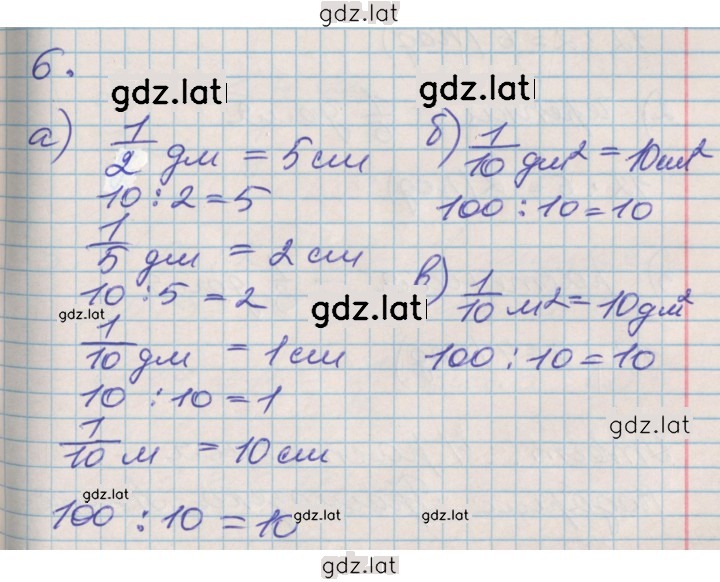 gdz.lat
6.
gdz.lat
gdz.lat
а) 1/2 дм = 5 см
10 : 2 = 5
1/5 дм = 2 см
10 : 5 = 2
gdz.lat
1/10 дм = 1 см
10 : 10 = 1
1/10 м = 10 см
gdz.lat
100 : 10 = 10
gdz.lat
б) 1/10 дм² = 10 см²
100 : 10 = 10
gdz.lat
в) 1/10 м² = 10 дм²
100 : 10 = 10
gdz.lat
gdz.lat
gdz.lat